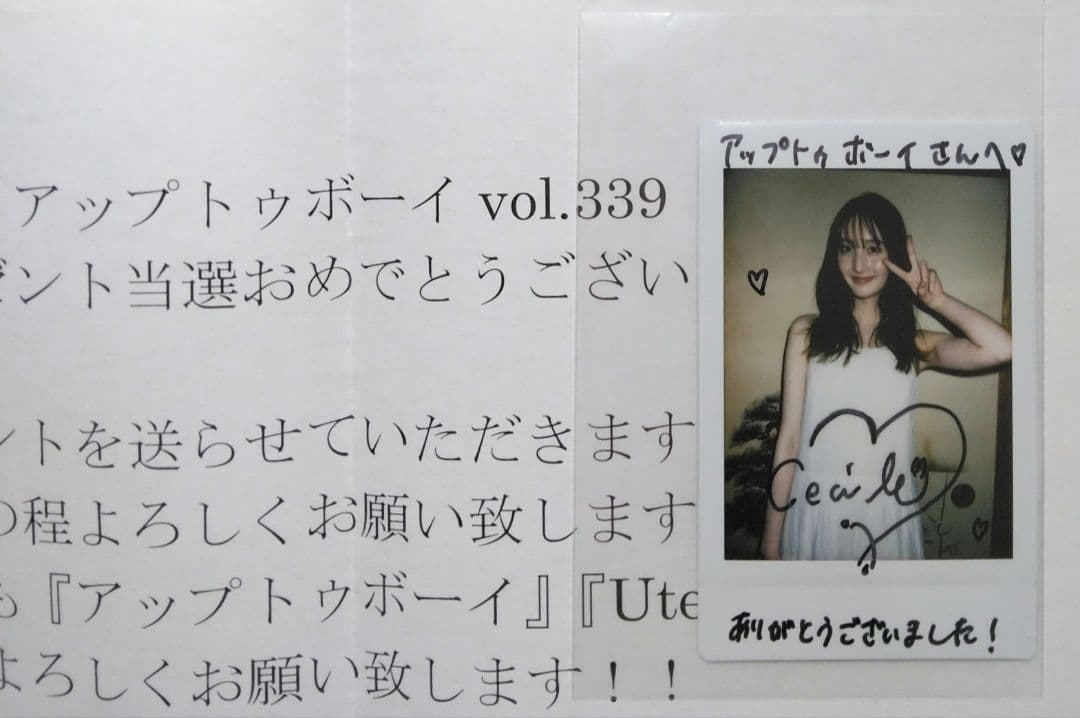 アップトゥボーイ vol.339
ゼント当選おめでとうござい
ントを送らせていただきます
の程よろしくお願い致します
も『アップトゥボーイ』『Ute
よろしくお願い致します！！
アップトゥボーイさんへ♡
Cecile
ありがとうございました！